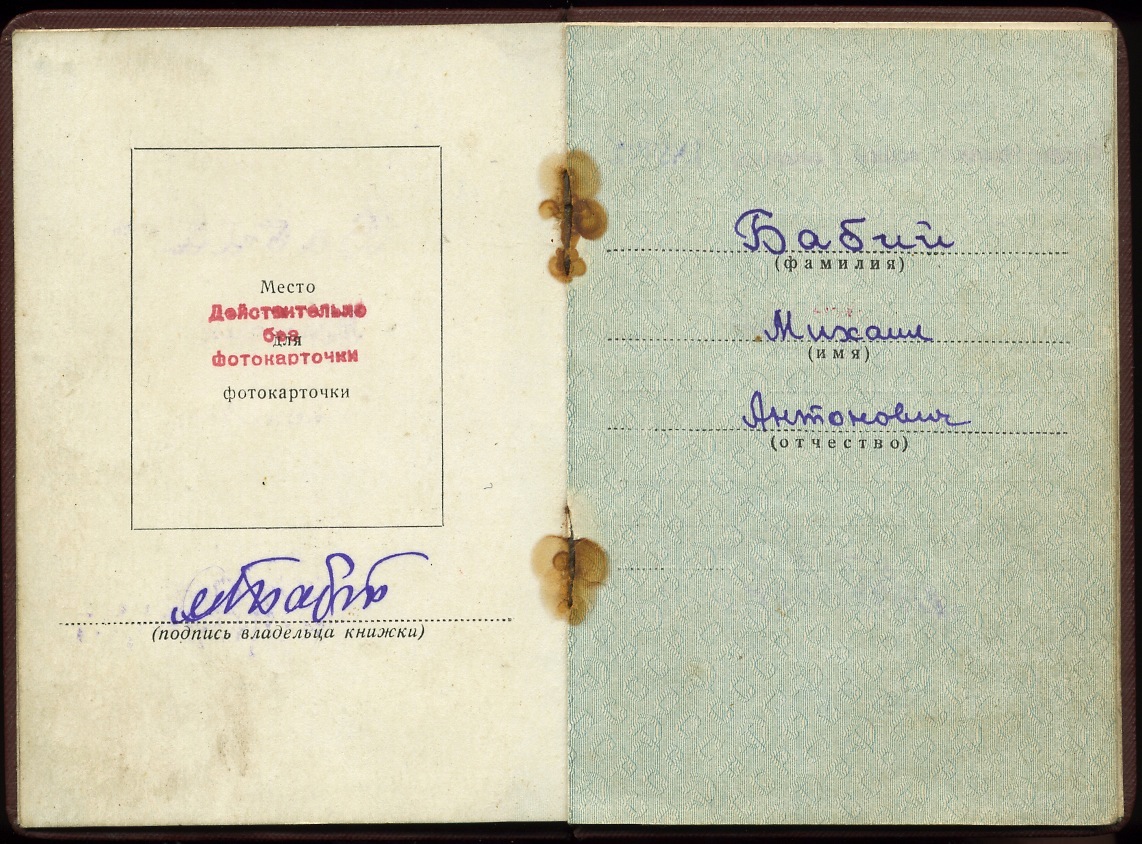 Место
Действительно
без
для
фотокарточки
фотокарточки
(подпись владельца книжки)
Бабий
(фамилия)
Михаил
(имя)
Антонович
(отчество)